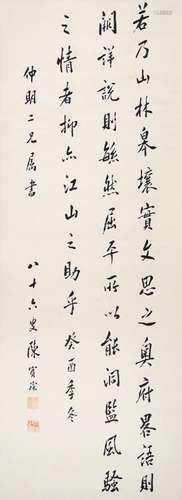 若乃山林皋壤實文思之奧府畧語則
闕詳說則繇然屈平所以能洞監風騷
之情者抑亦江山之助乎 癸酉季冬
仲明二兄属書
八十六叟陳寶琛